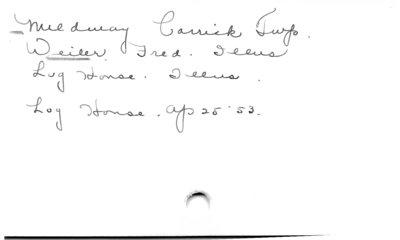 Mildmay Carrick Twp.
Weiler. Fred. Illus
Log House. Illus.
Log House. Ap 25 '53.